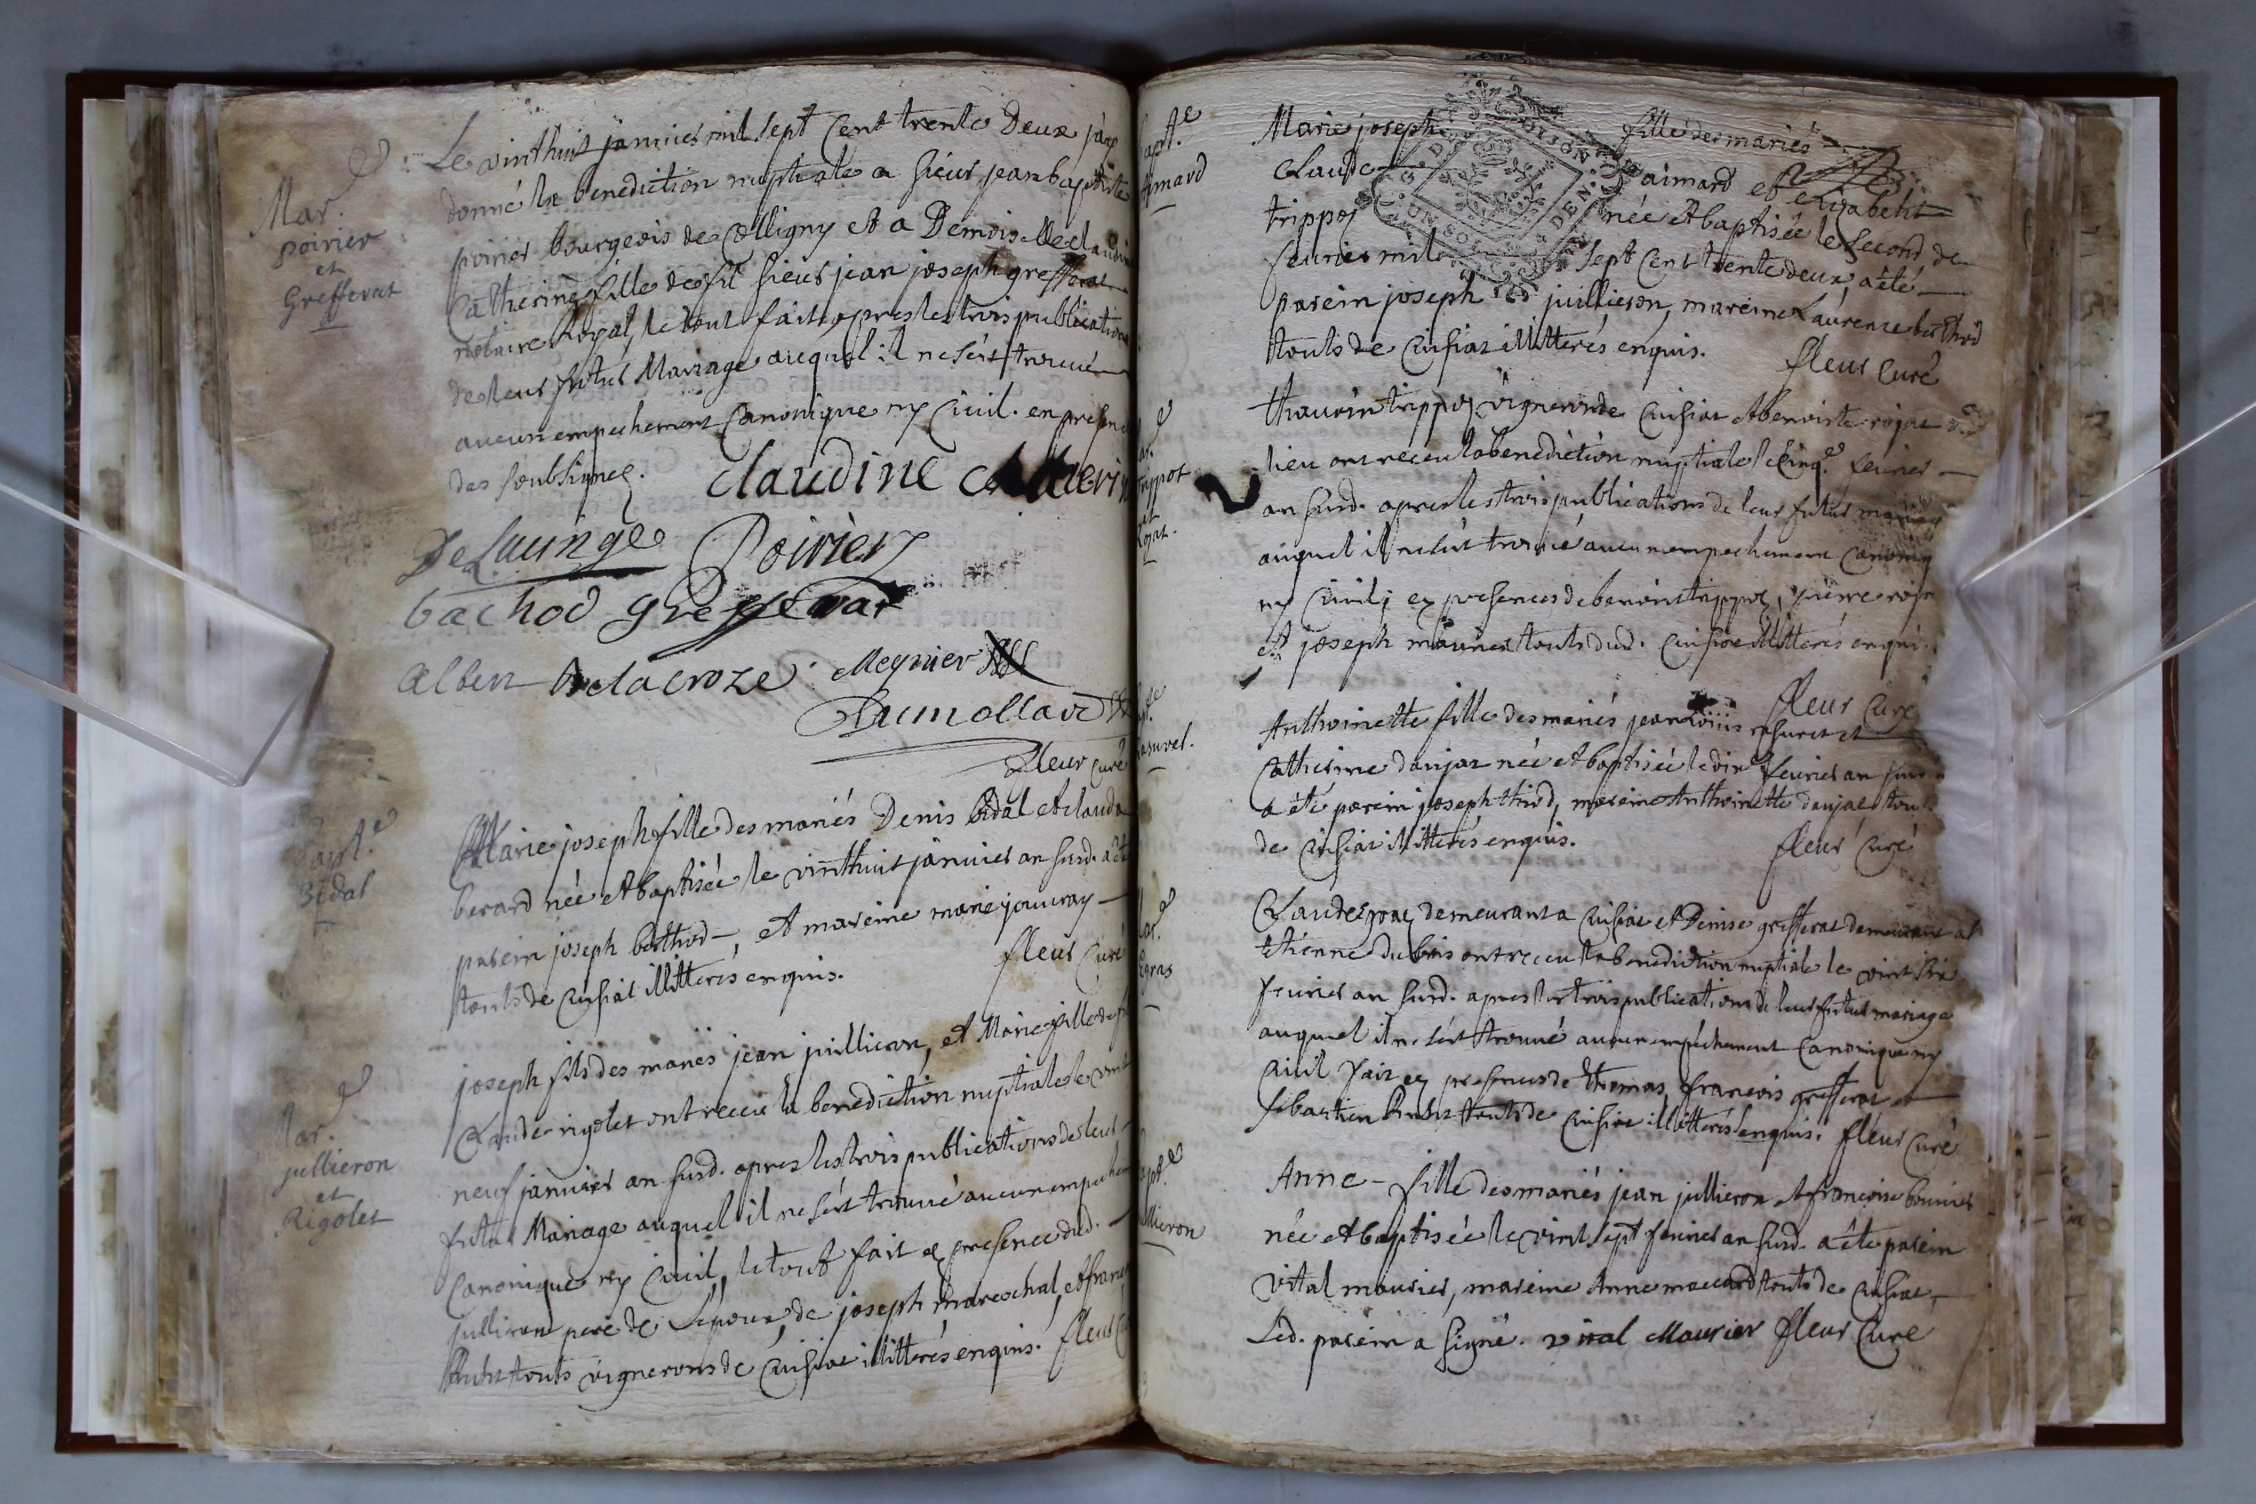 Mar.e
poirier
et
Grefferat
Le vinthuit janvier mil sept cent trente Deux j'ay
donné la benediction nuptiale a sieur jean baptiste
poirier bourgeois de Colligny et a Demoiselle claudine
Catherine fille de feu sieur jean joseph grefferat
notaire Royal, le tout fait apres les trois publications
de leur futur Mariage auquel il ne s'est trouvé
aucun empechement Canonique ny Civil. en presence
des soubsignez.
claudine Catherin
Delauinge Poirier
bachod grefferat
alben delacroze Meynier
Dumollard
fleur curé
Bapt.e
Bidal
Marie joseph fille des mariés Denis Bidal et clauda
berard née et baptisée le vinthuit janvier an susd. a été
parein joseph berthod, et mareine marie jouvray
touts de cusiat illitterés enquis.
fleur Curé
Mar.e
jullieron
et
Rigolet
joseph fils des mariés jean juillieron, et Marie fille de
Claude rigolet ont receu la benediction nuptiale le vint
neuf janvier an susd. apres les trois publications de leur
futur Mariage auquel il ne s'est trouvé aucun empechem
Canonique ny Civil, le tout fait en presence dud.
jullieron pere de l'epoux, de joseph mareschal, et françois
touts vignerons de Cusiat illitterés enquis. fleur Cu
bapt.e
Aimard
Marie joseph fille des mariés
Claude aimard et elizabeth
trippoz née et baptisée le second de
fevrier mil sept cent trente deux a été
parein joseph juillieron, mareine Laurence berthod
touts de Cusiat illitterés enquis.
fleur Curé
Mar.e
trippot
et
Rojat.
trippoz vigneron de Cusiat et benoiste rojat
lieu ont receu la benediction nuptiale le Cinq.e fevrier
an susd. apres les trois publications de leur futur mariage
auquel il ne s'est trouvé aucun empechement Canoniq
ny Civil; en presences de benoist trippoz, pierre roja
et joseph maurier touts dud. Cusiat illitterés enqui
fleur Curé
bapt.e
rasurel.
Anthoinette fille des mariés jean Louis rasurel et
Catherine danjat née et baptisée le dix.e fevrier an susd
a été parein joseph thivod, mareine Anthoinette danjat touts
de Cusiat illitterés enquis.
fleur Curé
Mar.e
Egras
Claude gras demeurant a Cusiat et Denise grefferat demeurant a St
Etienne du bois ont receu la benediction nuptiale le vint six
fevrier an susd. apres les trois publications de leur futur mariage
auquel il ne s'est trouvé aucun empechement Canonique ny
Civil fait en presences de thomas, françois grefferat et
sebastien touts de Cusiat illitterés enquis. fleur Curé
bapt.e
jullieron
Anne - fille des mariés jean jullieron et françoise bouvier
née et baptisée le vint sept fevrier an susd. a été parein
vital maurier, mareine Anne maccard touts de Cusiat
Led. parein a signé. vital Maurier fleur Curé